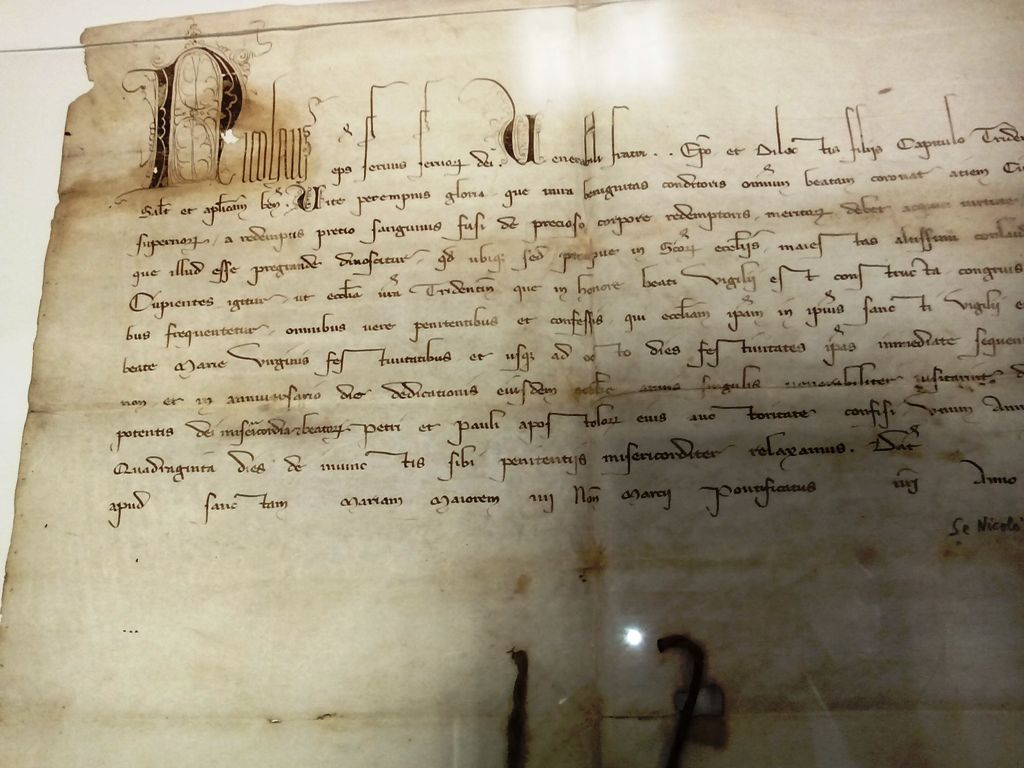 Nicolaus eps servus servoꝝ dei. Venerabili fratri .. Epo et Dilectis filiis Capitulo Triden
Salt et aplicam ben. Vite perempnis gloria que mira benignitas conditoris omnium beatam coronat aciem Ci
supernoꝝ, a redemptis pretio sanguinis fusi de precioso corpore redemptoris, meritoꝝ debet acquiri virtute
que illud esse pregrande dinoscitur, qd ubiqꝫ sed precipue in Scoꝝ ecclijs, maiestas altissimi collaud
Cupientes igitur, ut ecclia vra Tridentin que in honore beati Vigilij est constructa congruis
bus frequentetur, omnibus vere penitentibus et confessis qui eccliam ipam in ipius sancti Vigilij e
beate Marie Virginis festivitatibus et usqꝫ ad octo dies festivitates ipas immediate sequen
non et in anniversario die dedicationis eiusdem ecclie annis singulis venerabiliter visitarint, d
potentis dei misericordia et beatoꝝ Petri et Pauli apostoloꝝ eius auctoritate confisi, Unum Ann
Quadraginta dies de iniunctis sibi penitentijs misericorditer relaxamus. Dat
apud sanctam Mariam Maiorem iiij Non Marcij Pontificatus nri Anno
Se Nicolo